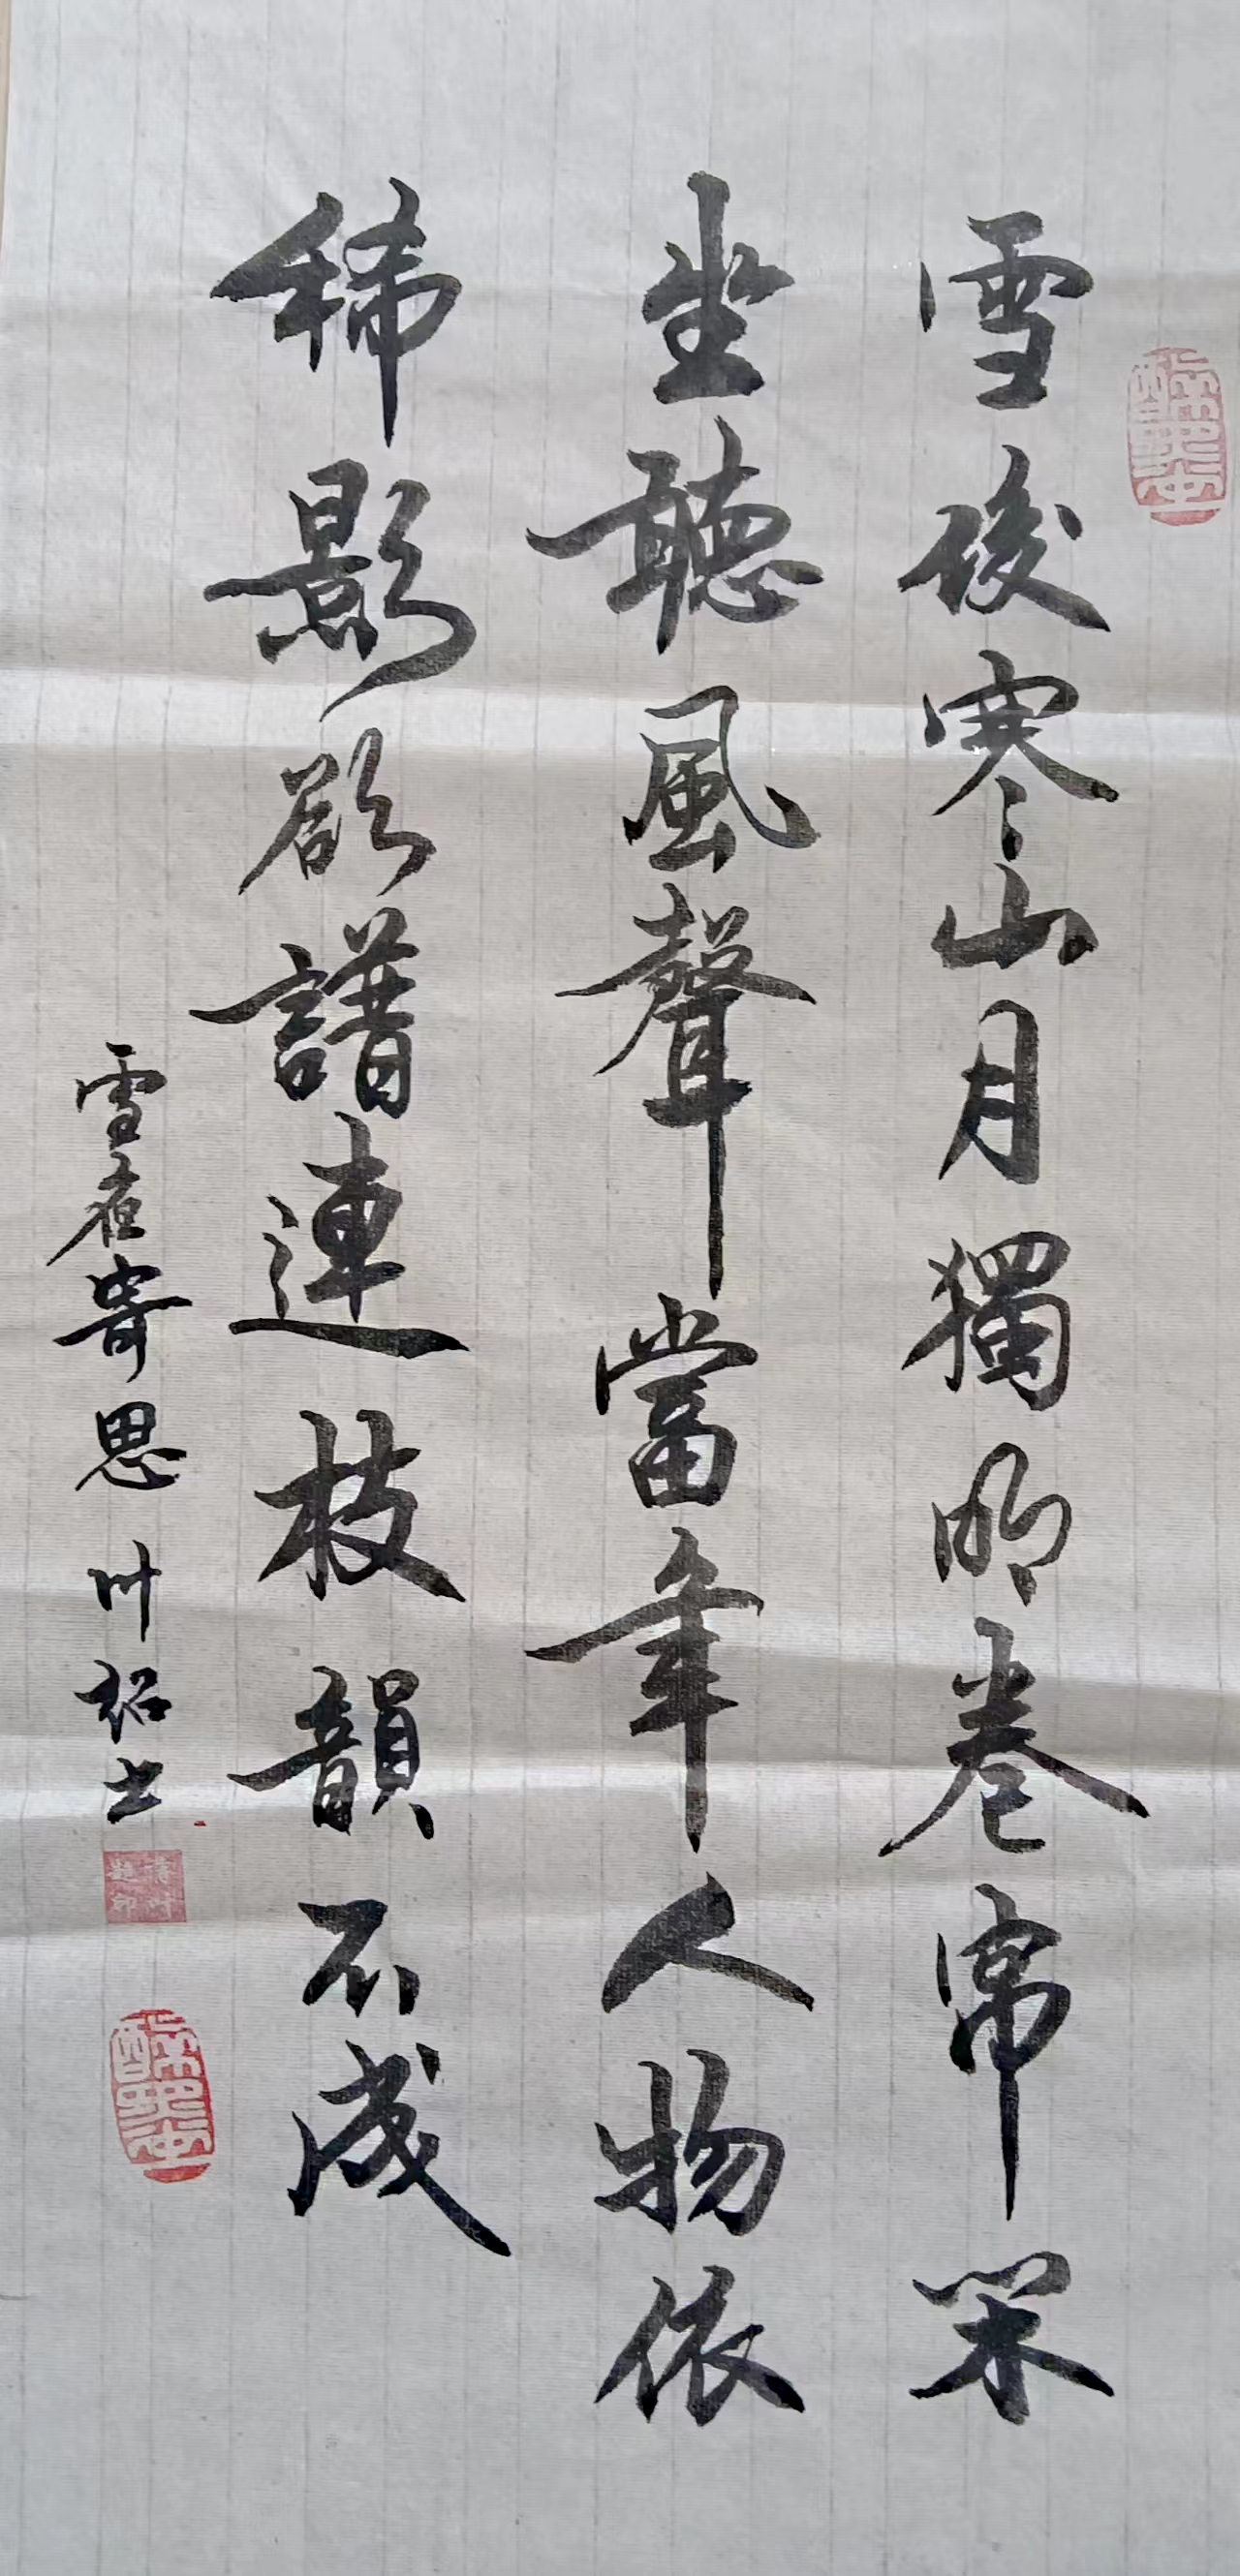 雪後寒山月獨明卷帘罙
坐聽風聲當年人物依
稀影欲譜連枝韻不成
雪夜寄思 叶书